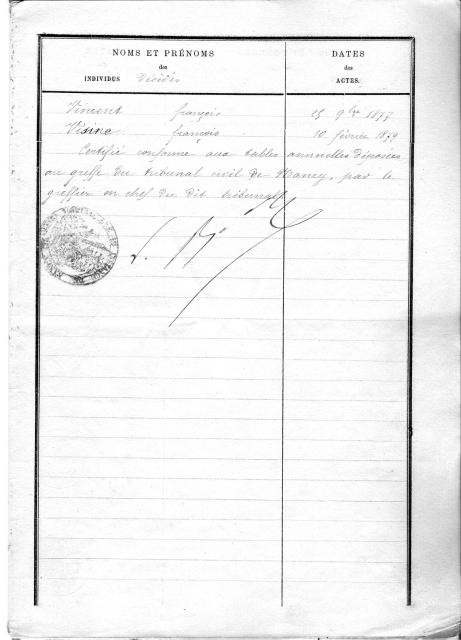 NOMS ET PRÉNOMS
des
INDIVIDUS Décédés
DATES
des
ACTES.
Vincent françois 15 9bre 1877
Visine françois 10 février 1879
Certifié conforme aux tables annuelles déposées
au greffe du tribunal civil de Nancy, par le
greffier en chef du dit tribunal